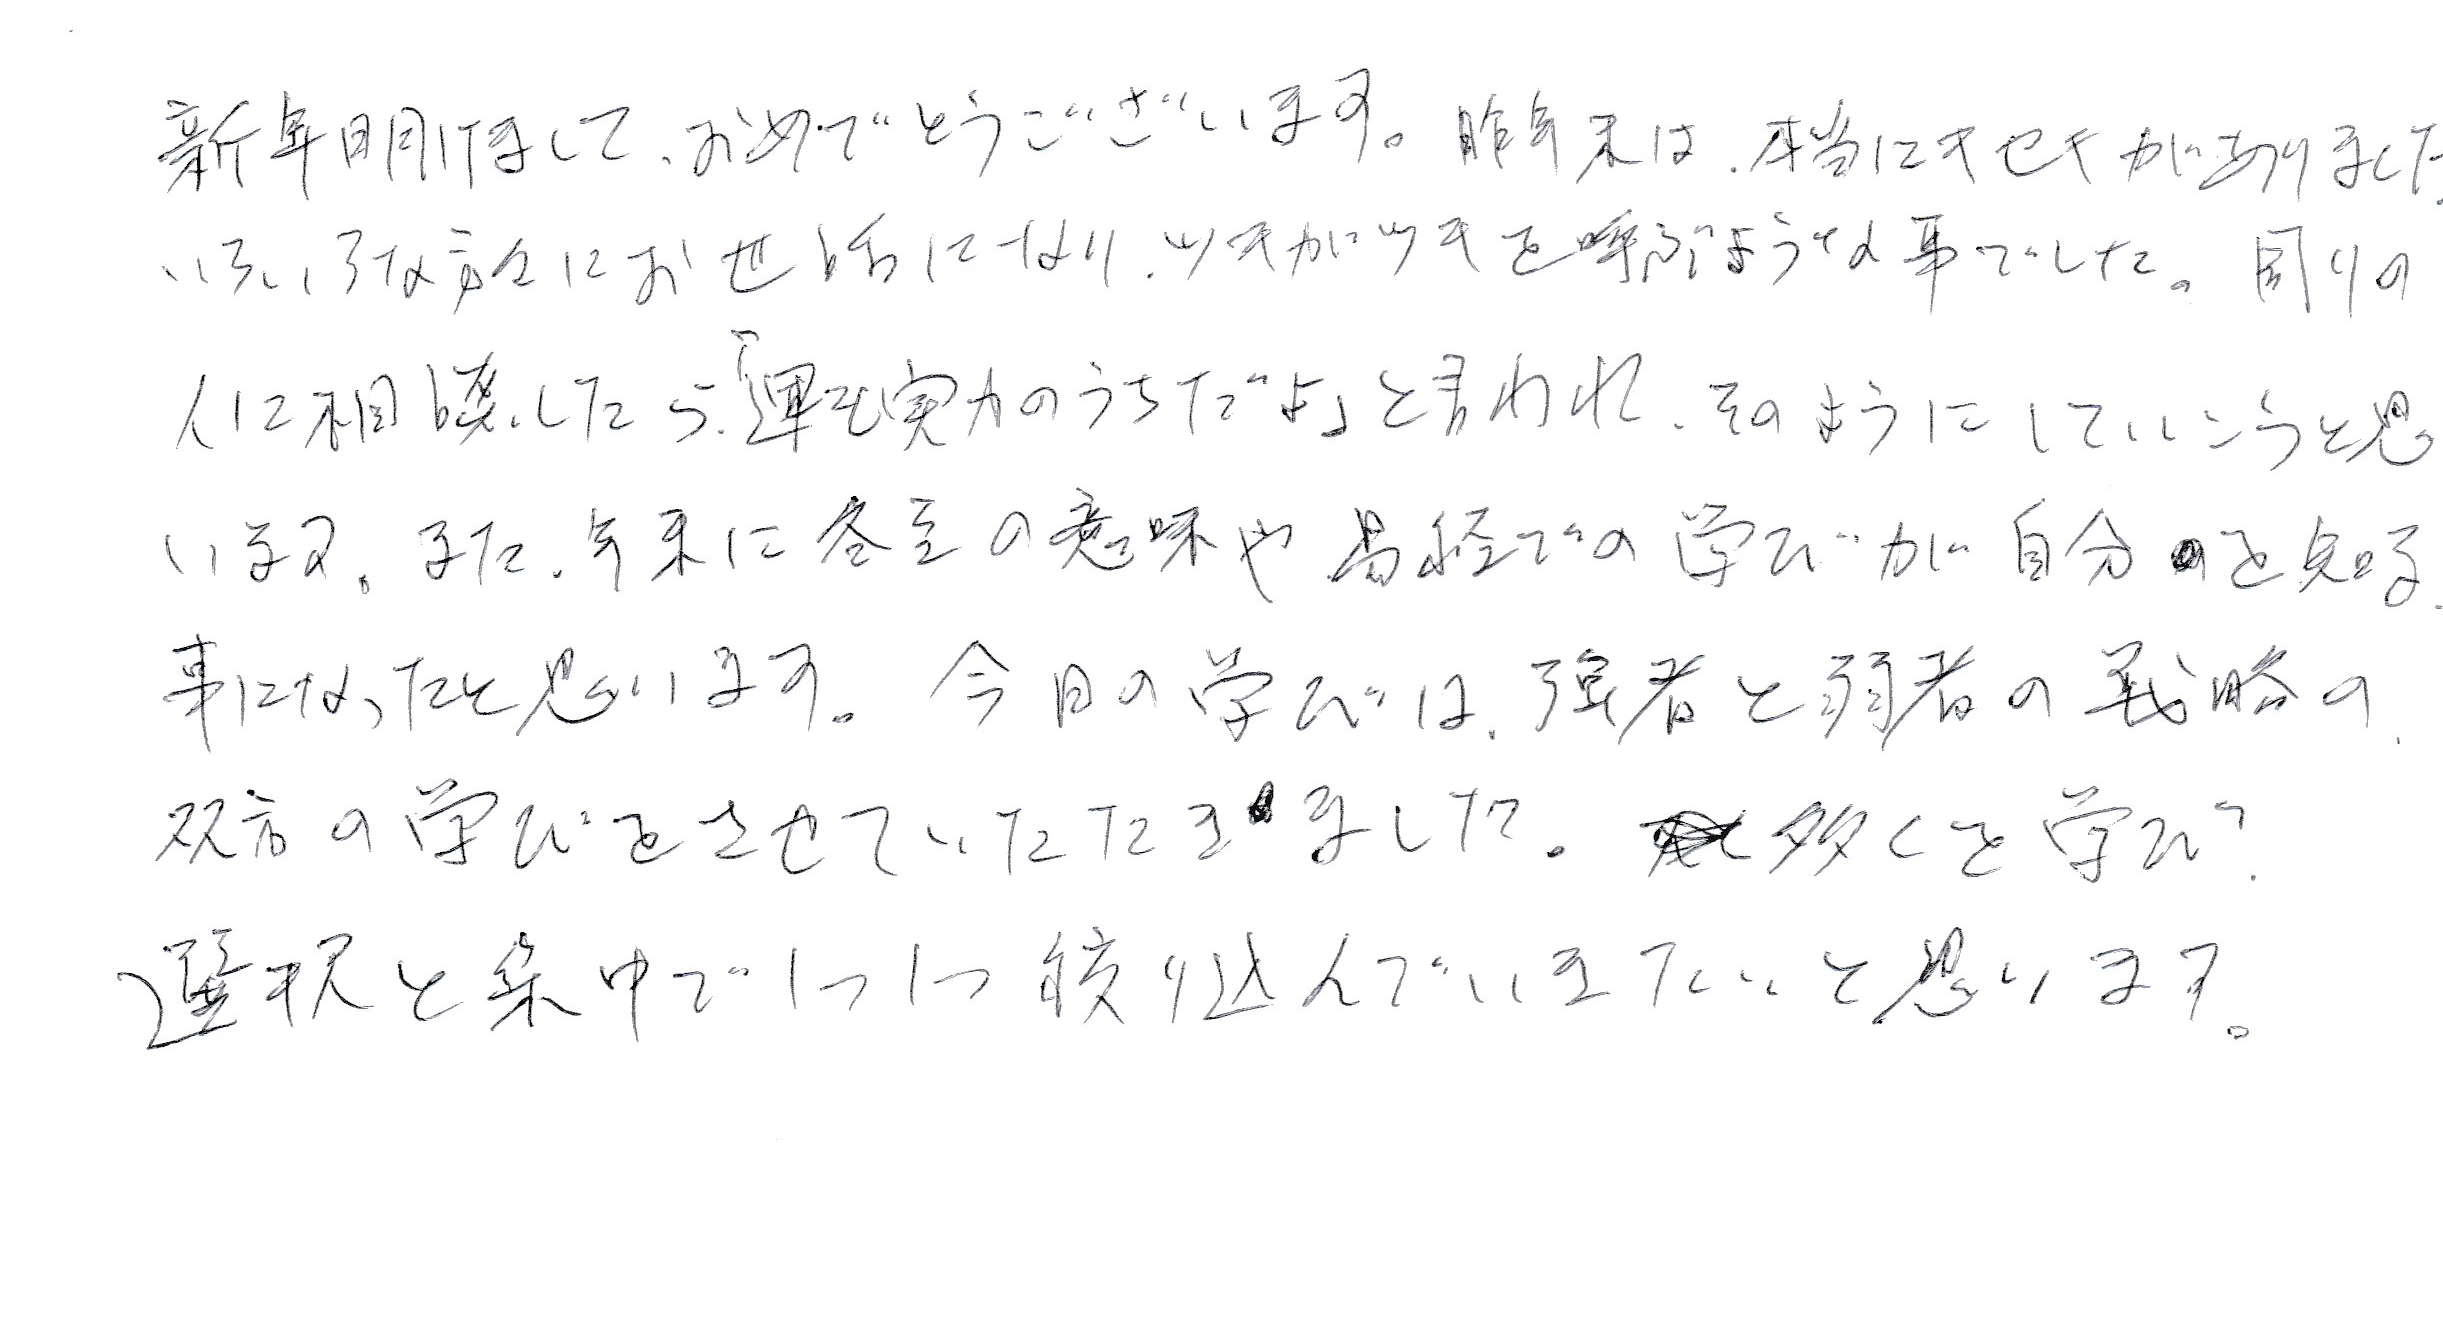 新年明けまして、おめでとうございます。昨年末は、本当にキセキがありました。
いろいろな方々にお世話になり、ツキがツキを呼ぶような事でした。周りの
人に相談したら、「運も実力のうちだよ」と言われ、そのようにしていこうと思
います。また、年末に冬至の意味や易経での学びが自分を知る
事になったと思います。今日の学びは、強者と弱者の戦略の
双方の学びをさせていただきました。多くを学び、
選択と集中で1つ1つ絞り込んでいきたいと思います。